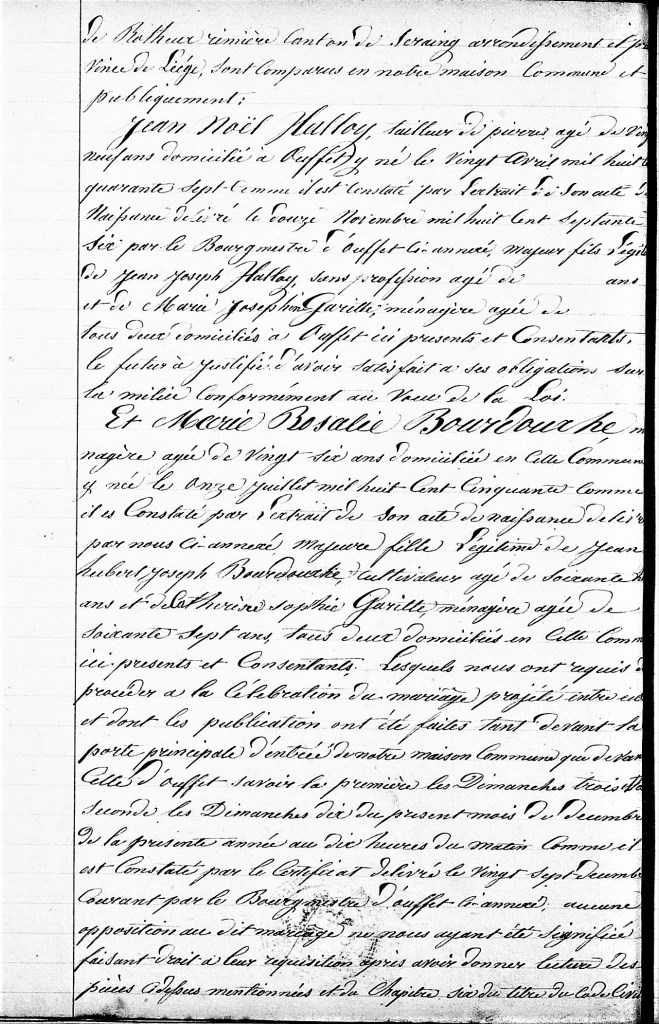 de Rotheux rimière Canton de Seraing arrondissement et pro
vince de Liége, sont Comparus en notre maison Commune et
publiquement:
Jean Noël Halloy, tailleur de pierres agé de Vingt
neuf ans domicilié à Ouffet y né le Vingt Avril mil huit
quarante sept Comme il est Constaté par l'extrait de son acte de
Naissance délivré le douze Novembre mil huit Cent Septante
six par le Bourgmestre d'Ouffet Ci-annexé, Majeur fils Légit
de Jean Joseph Halloy, sans profession agé de ans
et de Marie Joséphine Garitte, ménagère agée de
tous deux domiciliés à Ouffet ici presents et Consentants.
le futur à Justifié d'avoir satisfait a ses obligations sur
la milice Conformément au Voeu de la Loi.
Et Marie Rosalie Bourdouxhe m
nagère agée de Vingt six ans domiciliée en Cette Commune
y née le Onze Juillet mil huit Cent Cinquante Comme
il es Constaté par l'extrait de son acte de naissance délivr
par nous Ci-annexé, Majeure fille Légitime de Jean
hubert Joseph Bourdouxhe, Cultivateur agé de soixante
ans et de Catherine sophie Garitte, ménagère agée de
soixante sept ans, tous deux domiciliés en Cette Comm
ici presents et Consentants. Lesquels nous ont requis d
proceder a la Célébration du mariage projeté entre eux
et dont les publication ont été faites tant devant la
porte principale d'entrée de notre maison Commune que devan
Celle d'Ouffet savoir la première les Dimanches trois &
seconde les Dimanches dix du present mois de decembre
de la presente année au dix heures du matin Comme il
est Constaté par le Certificat delivré le Vingt sept decembr
Courant par le Bourgmestre d'Ouffet Ci-annexé, aucune
opposition au dit mariage ne nous ayant été signifiée
faisant droit a leur requisition après avoir donner lecture des
pièces Ci-dessus mentionnées et du Chapitre six du titre du Code Civil